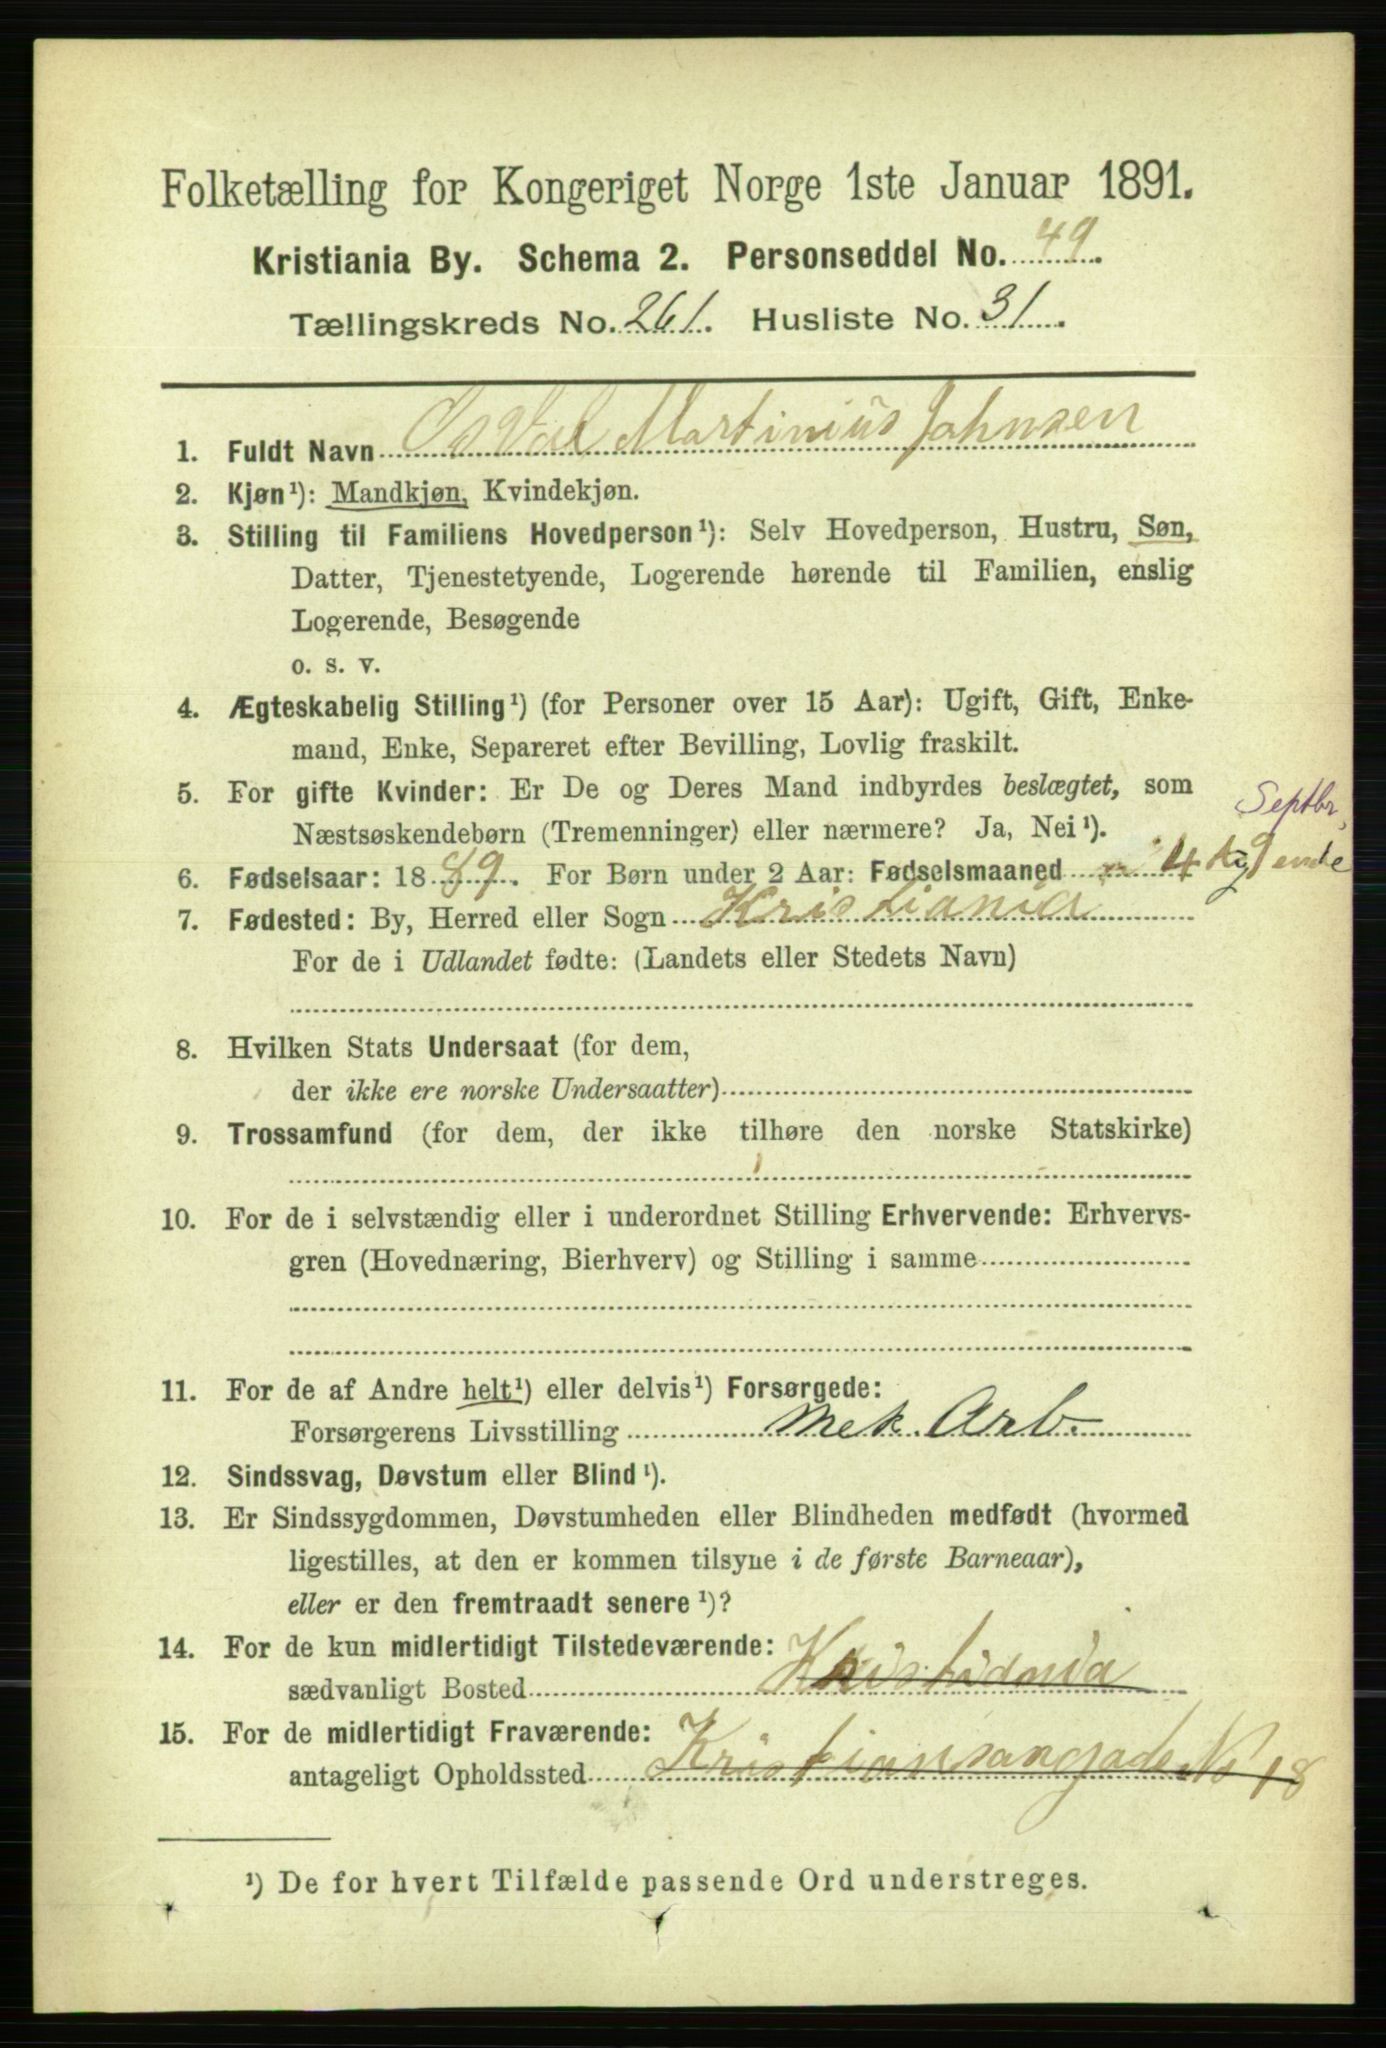 Folketælling for Kongeriget Norge 1ste Januar 1891.
Kristiania By. Schema 2. Personseddel No. 49.
Tællingskreds No. 261. Husliste No. 31.
1. Fuldt Navn Osval Martinius Johnsen
2. Kjøn¹): Mandkjøn, Kvindekjøn.
3. Stilling til Familiens Hovedperson¹): Selv Hovedperson, Hustru, Søn,
Datter, Tjenestetyende, Logerende hørende til Familien, enslig
Logerende, Besøgende
o. s. v.
4. Ægteskabelig Stilling¹) (for Personer over 15 Aar): Ugift, Gift, Enke-
mand, Enke, Separeret efter Bevilling, Lovlig fraskilt.
5. For gifte Kvinder: Er De og Deres Mand indbyrdes beslægtet, som
Septbr.
Næstsøskendebørn (Tremenninger) eller nærmere? Ja, Nei¹).
6. Fødselsaar: 1889. For Børn under 2 Aar: Fødselsmaaned 4
7. Fødested: By, Herred eller Sogn Kristiania
For de i Udlandet fødte: (Landets eller Stedets Navn)
8. Hvilken Stats Undersaat (for dem,
der ikke ere norske Undersaatter)
9. Trossamfund (for dem, der ikke tilhøre den norske Statskirke)
10. For de i selvstændig eller i underordnet Stilling Erhvervende: Erhvervs-
gren (Hovednæring, Bierhverv) og Stilling i samme
11. For de af Andre helt¹) eller delvis¹) Forsørgede:
Forsørgerens Livsstilling Mek. Arb.
12. Sindssvag, Døvstum eller Blind¹).
13. Er Sindssygdommen, Døvstumheden eller Blindheden medfødt (hvormed
ligestilles, at den er kommen tilsyne i de første Barneaar),
eller er den fremtraadt senere¹)?
14. For de kun midlertidigt Tilstedeværende:
sædvanligt Bosted Kristiania
15. For de midlertidigt Fraværende:
antageligt Opholdssted Kristiansangade No 18
¹) De for hvert Tilfælde passende Ord understreges.